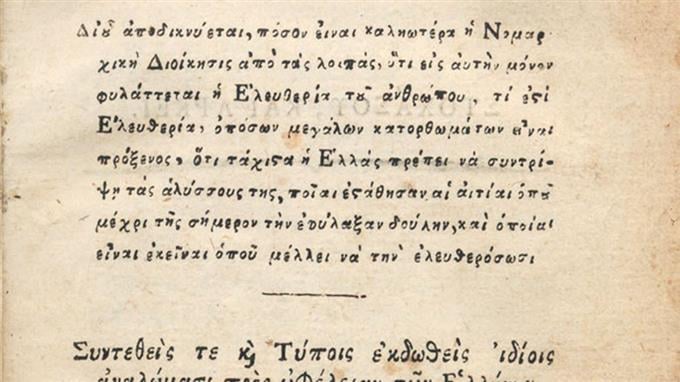 Δι' οὗ ἀποδικνύεται, πόσον εἶναι καλητωτέρα ἡ Νομαρ
χικὴ Διοίκησις ἀπὸ τὰς λοιπάς, ὅτι εἰς αὐτὴν μόνον
φυλάττεται ἡ Ἐλευθερία τοῦ ἀνθρώπου, τί ἐστὶ
Ἐλευθερία, ὁπόσων μεγάλων κατορθωμάτων εἶναι
πρόξενος, ὅτι τάχιστα ἡ Ἑλλὰς πρέπει νὰ συντρί-
ψῃ τὰς ἁλύσσους της, ποῖαι ἐστάθησαν αἱ αἰτίαι ὁποῦ
μέχρι τῆς σήμερον τὴν ἐφύλαξαν δούλην, καὶ ὁποῖαι
εἶναι ἐκεῖναι ὁποῦ μέλλει νὰ τὴν ἐλευθερόσωσι
Συντεθεὶς τε καὶ Τύποις ἐκδωθεὶς ἰδίοις
ἀναλώμασι πρὸς ὠφέλειαν τῶν Ἑλλήνων